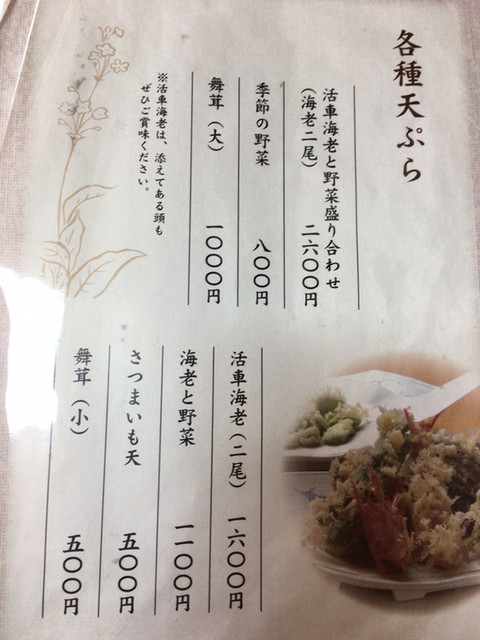 各種天ぷら
活車海老と野菜盛り合わせ
（海老二尾） 二六〇〇円
季節の野菜 八〇〇円
舞茸（大） 一〇〇〇円
※活車海老は、添えてある頭も
ぜひご賞味ください。
活車海老（二尾） 一六〇〇円
海老と野菜 一一〇〇円
さつまいも天 五〇〇円
舞茸（小） 五〇〇円